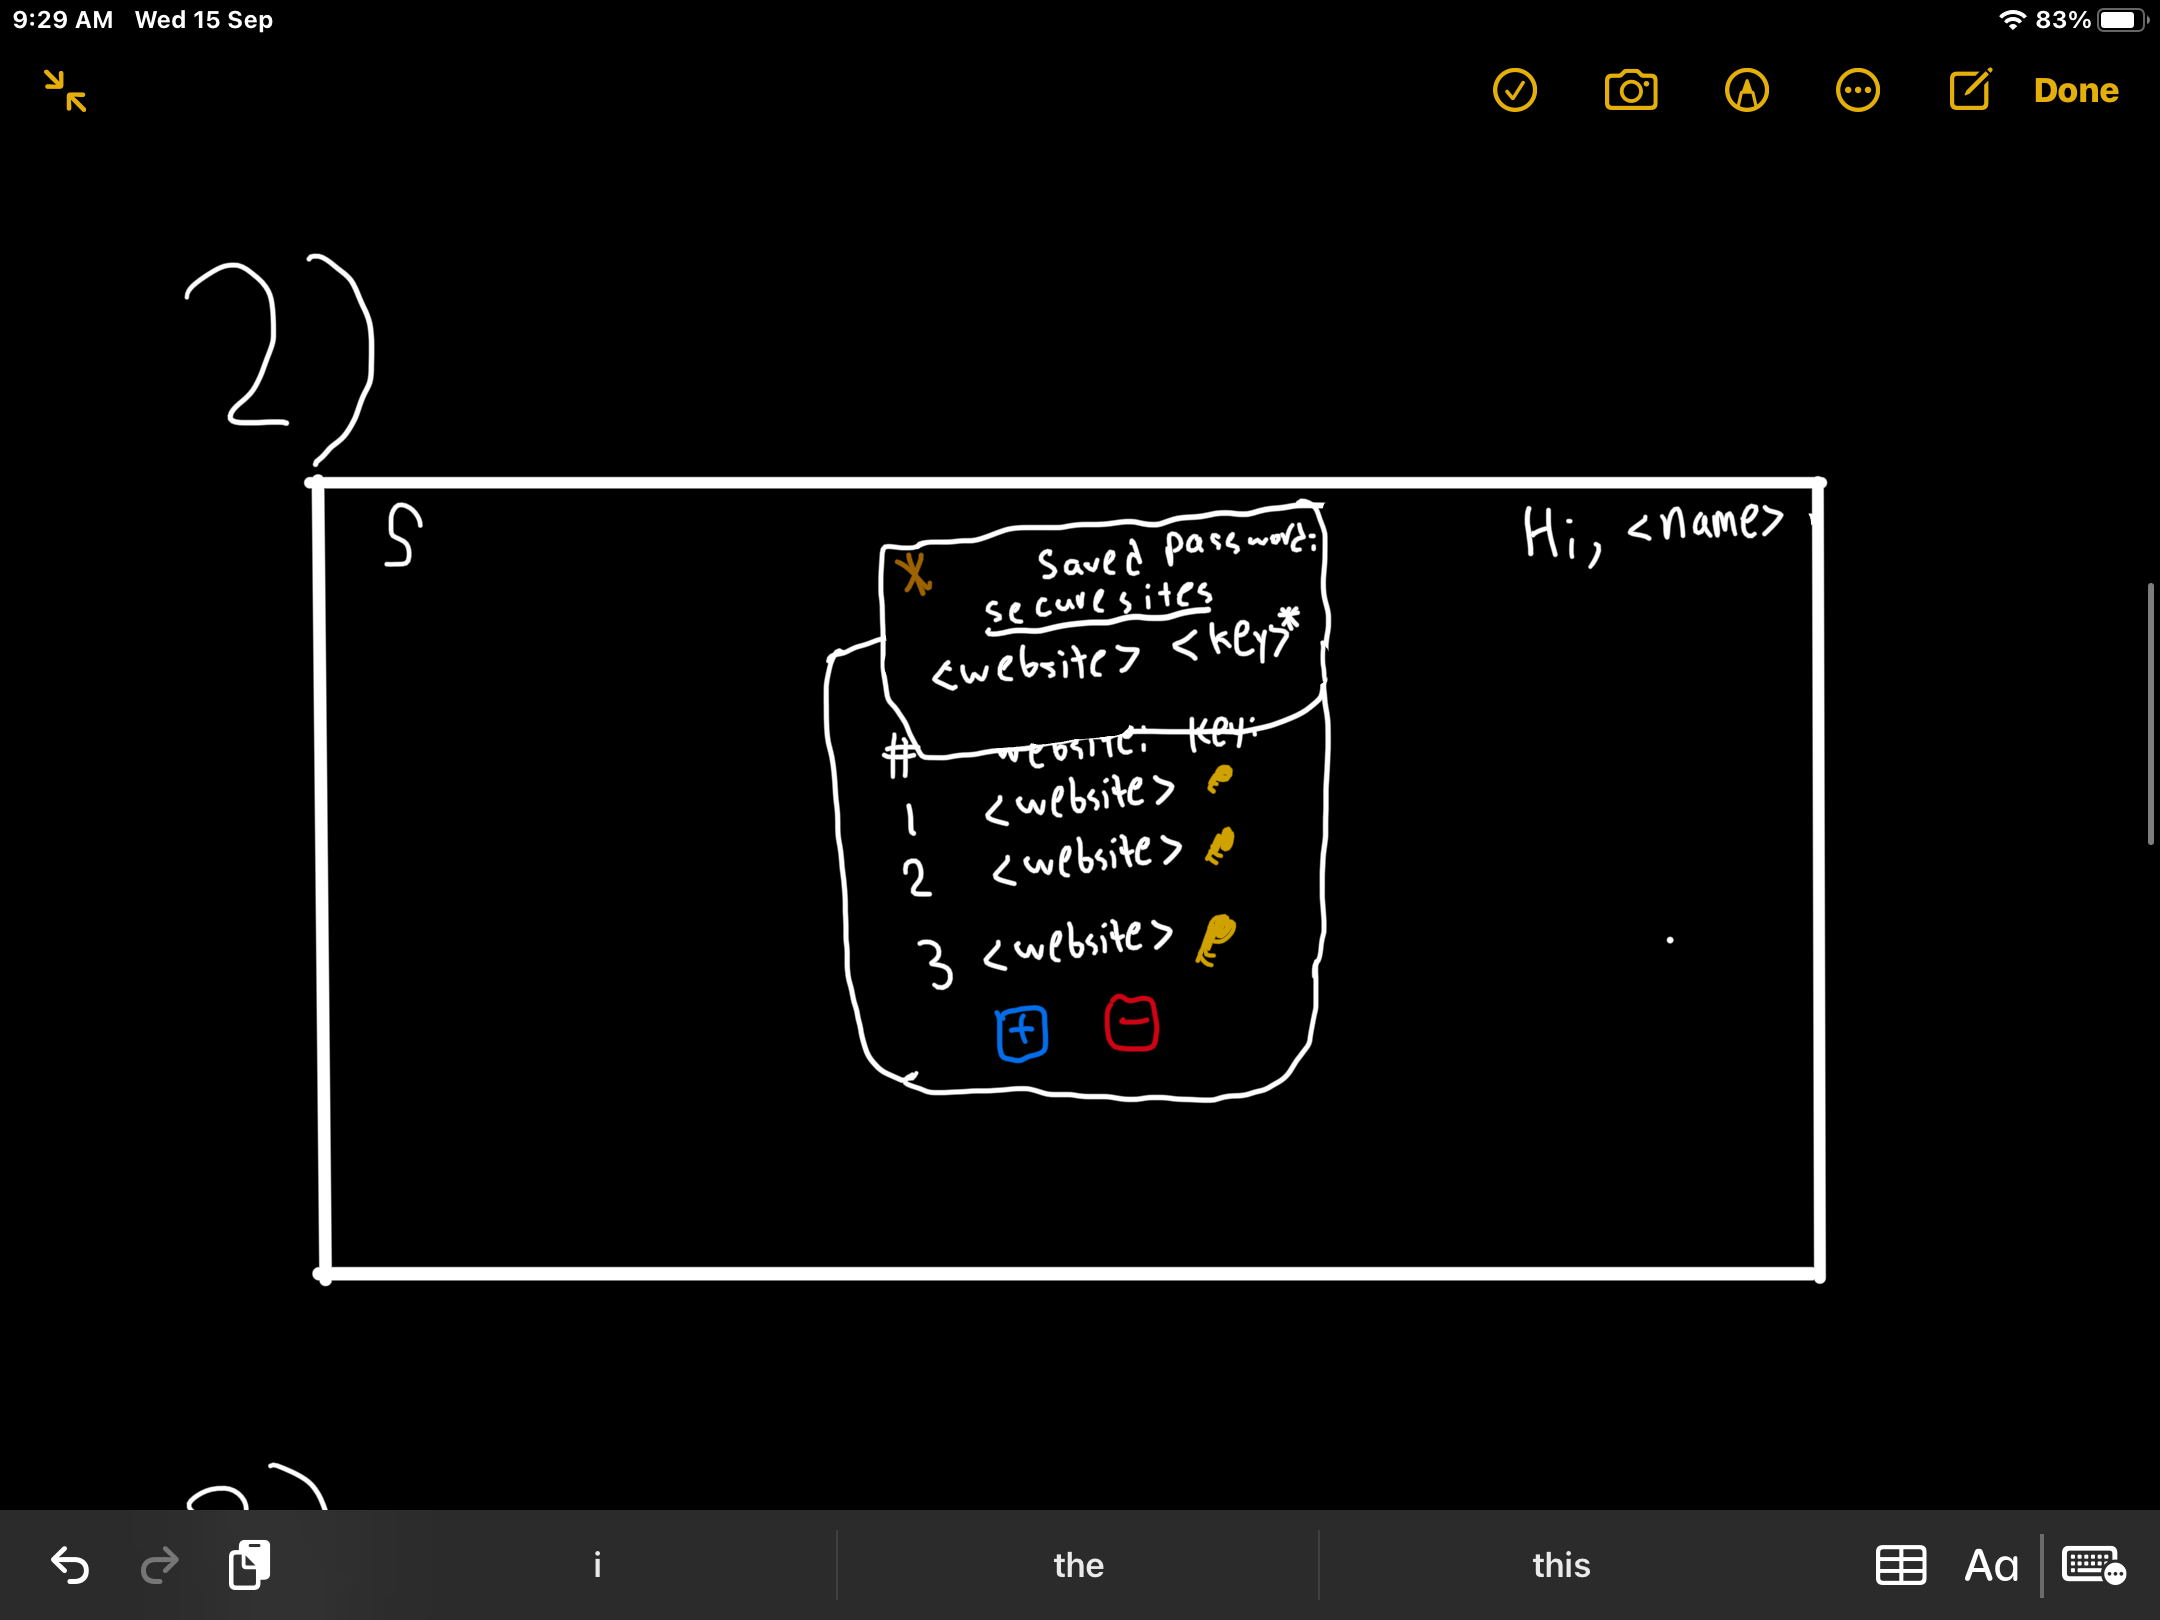 9:29 AM Wed 15 Sep 83%
Done
2)
S
Hi, <name>
X
Saved password:
securesites
<website> <key>*
# website: key:
1 <website>
2 <website>
3 <website>
+ -
i the this Aa